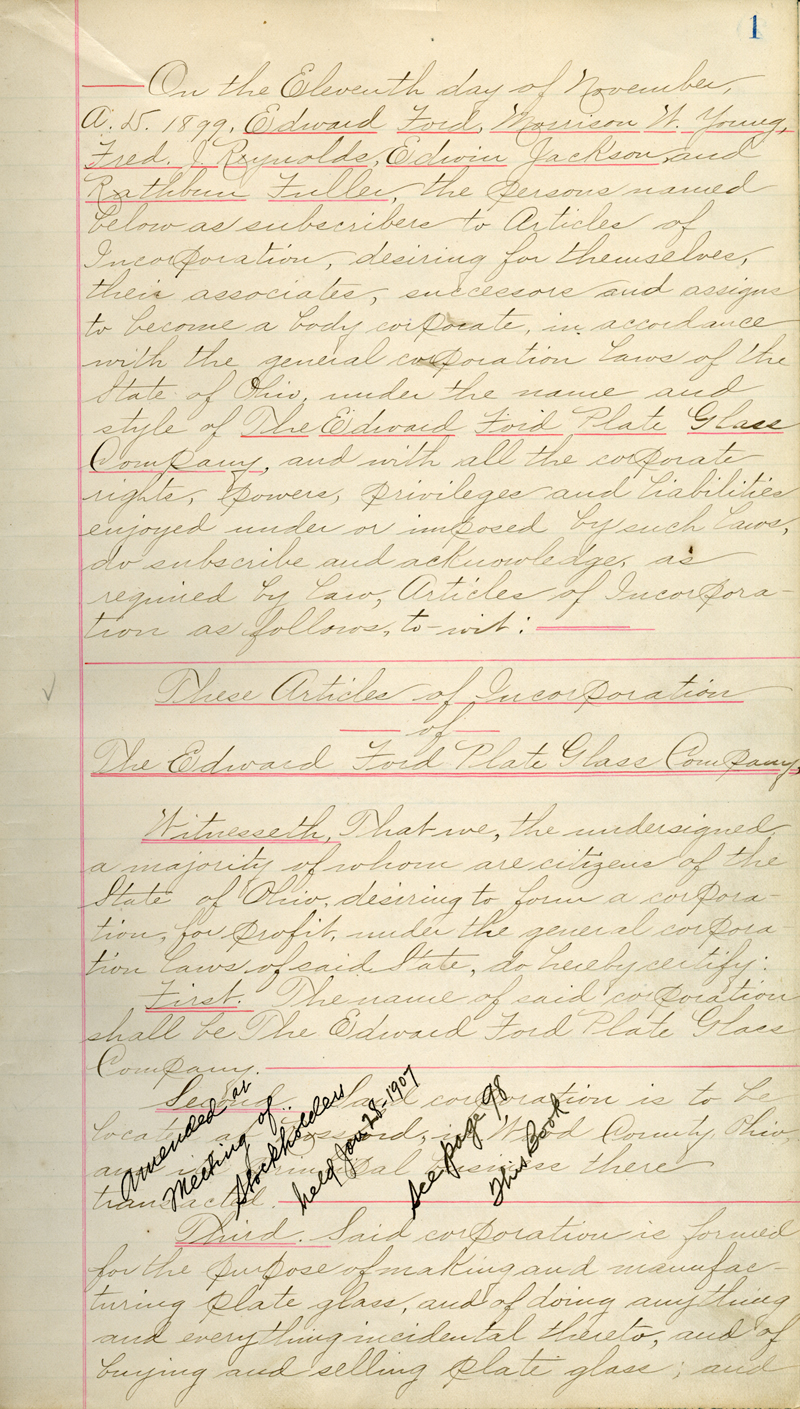 1
On the Eleventh day of November,
A. D. 1899, Edward Ford, Morrison W. Young,
Fred. J. Reynolds, Edwin Jackson and
Rathbun Fuller, the persons named
below as subscribers to Articles of
Incorporation, desiring for themselves,
their associates, successors and assigns
to become a body corporate, in accordance
with the general corporation laws of the
State of Ohio, under the name and
style of The Edward Ford Plate Glass
Company, and with all the corporate
rights, powers, privileges and liabilities
enjoyed under or imposed by such laws,
do subscribe and acknowledge, as
required by law, Articles of Incorpora-
tion as follows, to-wit:
These Articles of Incorporation
of
The Edward Ford Plate Glass Company,
Witnesseth, That we, the undersigned
a majority of whom are citizens of the
State of Ohio, desiring to form a corpora-
tion, for profit, under the general corpora-
tion laws of said State, do hereby certify:
First. The name of said corporation
shall be The Edward Ford Plate Glass
Company.
Second. Said corporation is to be
located at Rossford, in Wood County, Ohio,
and its principal business there
transacted.
Amended at
Meeting of
Stockholders
held Jan 28-1907
See page 98
This Book
Third. Said corporation is formed
for the purpose of making and manufac-
turing plate glass, and of doing anything
and everything incidental thereto, and of
buying and selling plate glass; and